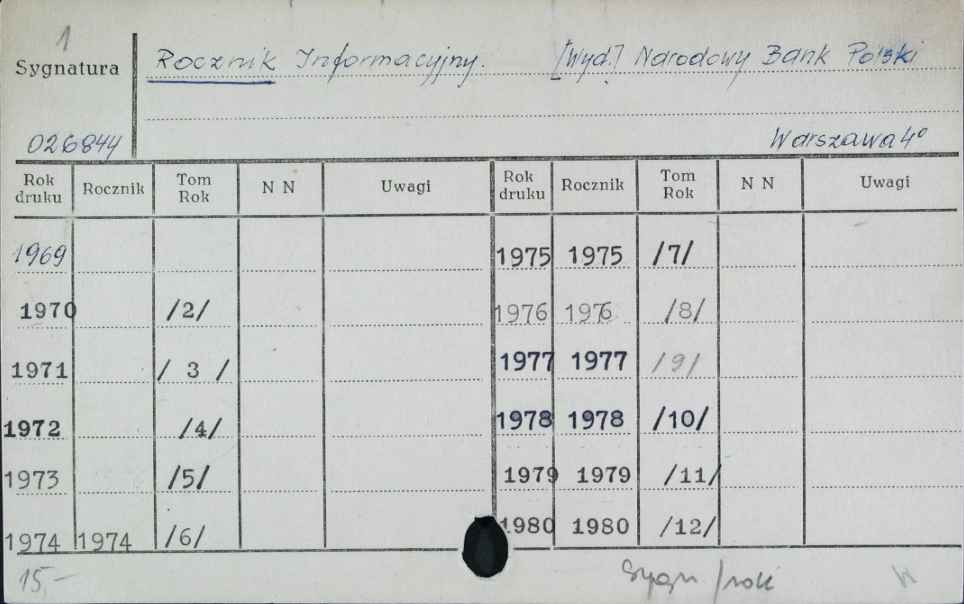 1
Sygnatura
Rocznik Informacyjny. [Wyd.] Narodowy Bank Polski
026844
Warszawa 4°
Rok druku Rocznik Tom Rok N N Uwagi Rok druku Rocznik Tom Rok N N Uwagi
1969 1975 1975 /7/
1970 /2/ 1976 1976 /8/
1971 / 3 / 1977 1977 /9/
1972 /4/ 1978 1978 /10/
1973 /5/ 1979 1979 /11/
1974 1974 /6/ 1980 1980 /12/
15,- Sygn /rok W